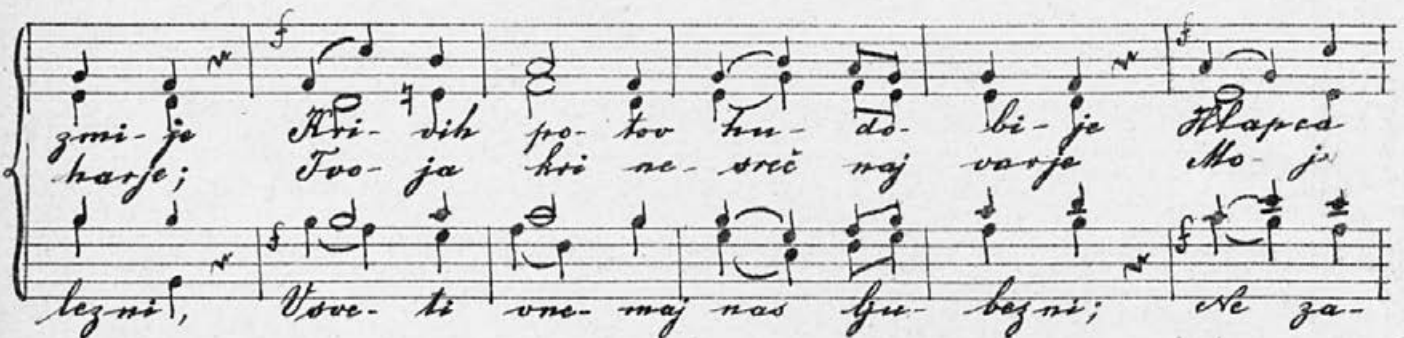 zmi-je Kri-vih po-tov hu-do-bi-je Hlapca
harje; Tvo-ja kri ne-sreč naj varje Mo-ja
lezni, Vsve-ti vne-maj nas lju-bezni; Ne za-